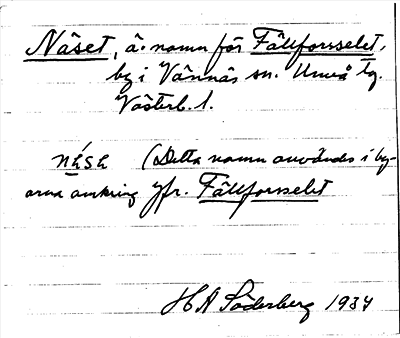 Näset, ä. namn för Fällforsselet,
by i Vännäs sn. Umeå tg.
Västerb. l.
nésɛ (Detta namn användes i by-
arna omkring Jfr. Fällforsselet
H A Söderberg 1934